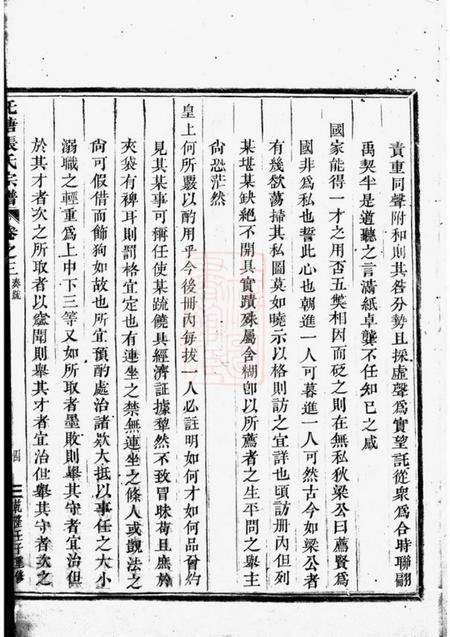 責重同聲附和則其咎分勢且採虛聲為實望託從衆為合時聯翩
禹契半是道聽之言濤紙卓龔不任知已之咸
國家能得一才之用否五獘相因而砭之則在無私狄梁公曰薦賢為
國非為私也誓此心也朝進一人可暮進一人可然古今如梁公者
有幾欲蕩掃其私圖莫如曉示以格則訪之宜詳也頃訪册內但列
某堪某缺絕不開具實蹟殊屬含糊卽以所薦者之生平問之舉主
尙恐茫然
皇上何所覈以酌用乎今後冊內每拔一人必註明如何才如何品曾灼
見其某事可稱任使某疏饒具經濟証據犂然不致冒昧苟且庶於
夾袋有裨耳則罰格宜定也有連坐之禁無連坐之條人或觀法之
尙可假借而飾狗如故也所宜預酌處治諸欵大抵以事任之大小
溺職之輕重為上中下三等又如所取者墨敗則舉其守者宜治但
於其才者次之所取者以竊聞則舉其才者宜治但舉其守者次之
張氏宗譜 卷之三 奏疏
四
乾隆壬子重修